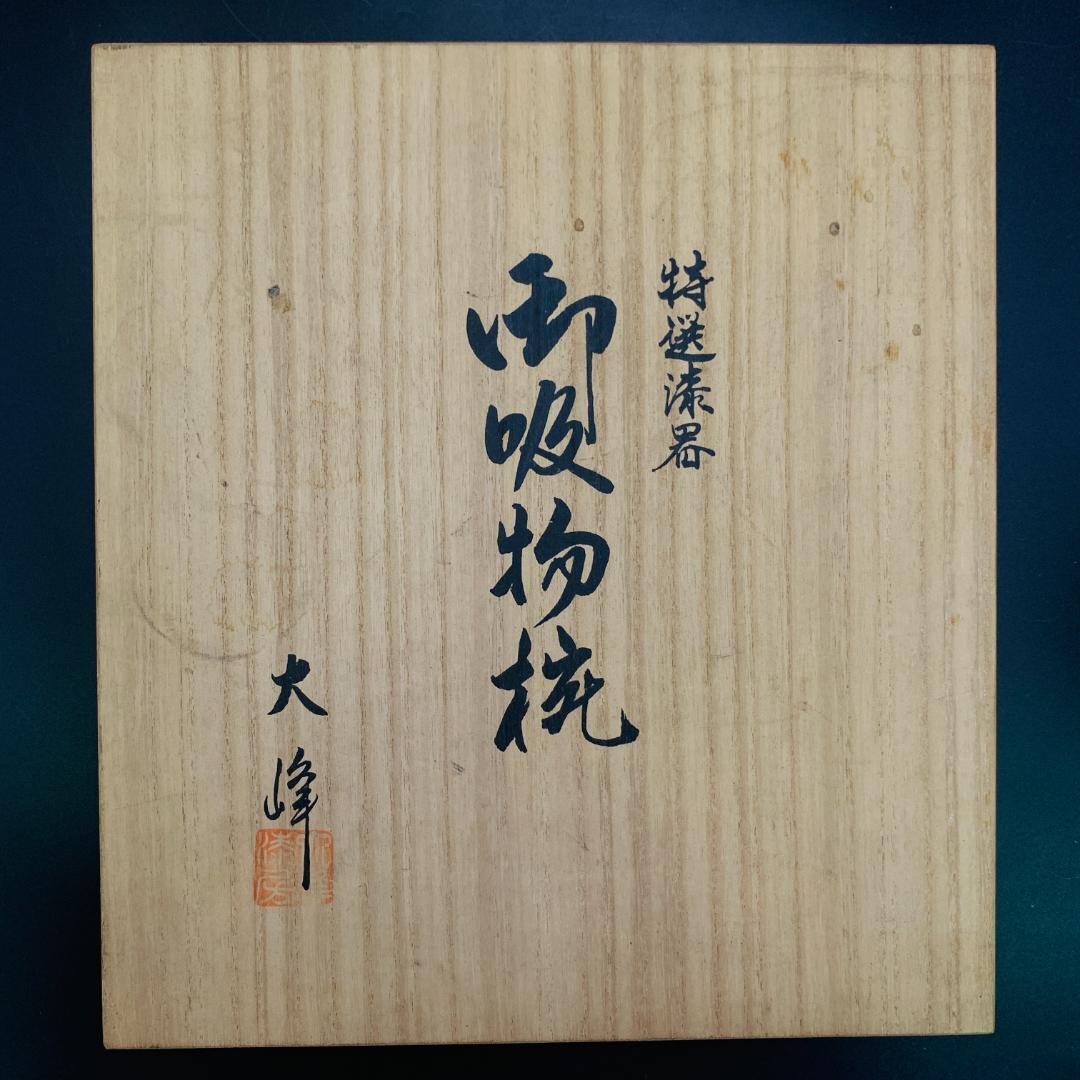 特選漆器
御吸物椀
大峰